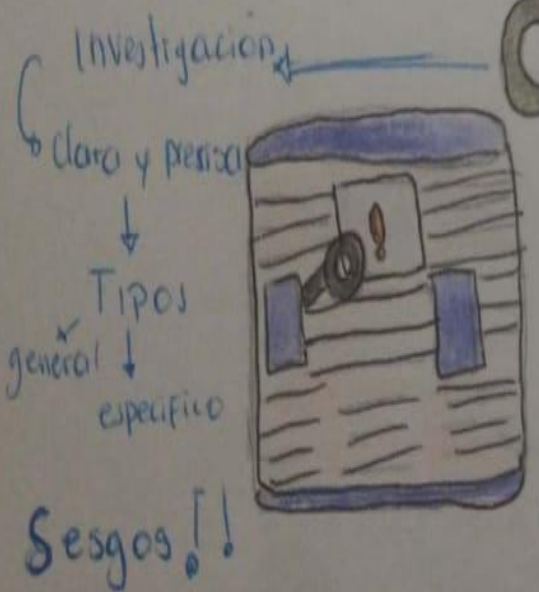 Investigación
clara y precisa
Tipos
general
especifico
Sesgos!!